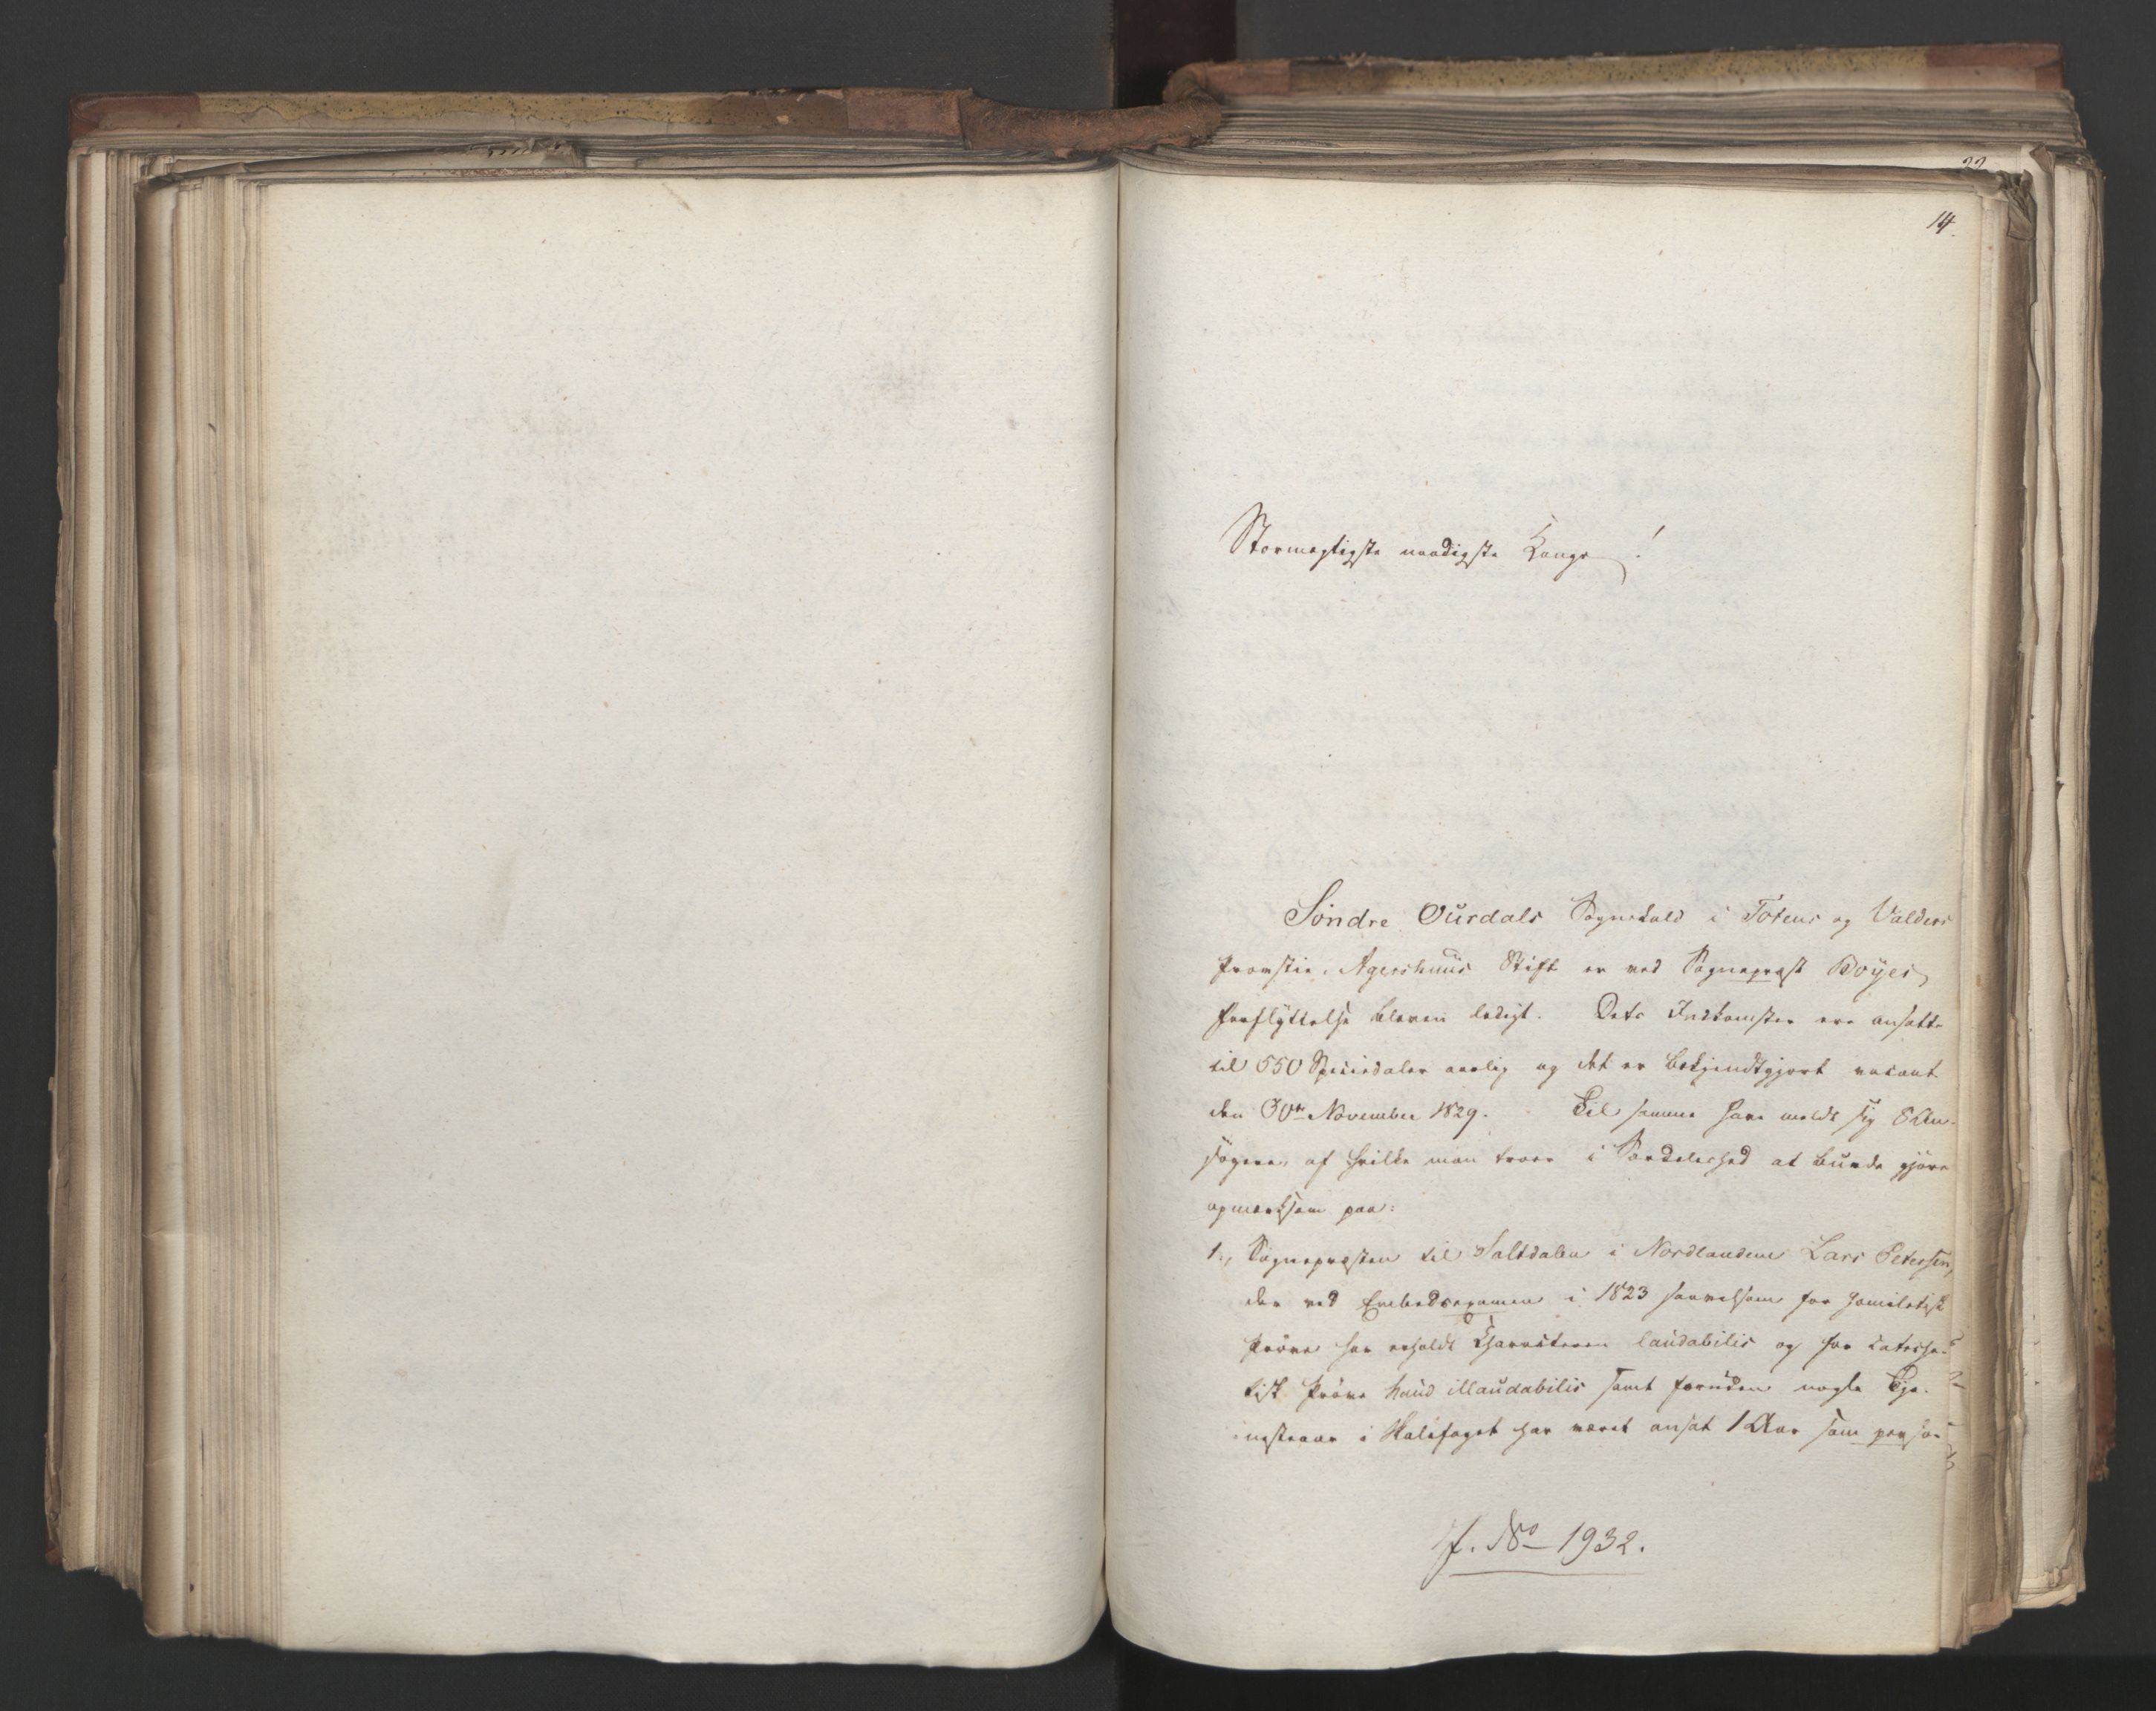 22
14.
Stormægtigste naadigste Konge!
Söndre Ourdals Sognekald i Totens og Valders
Provstie, Agershuus Stift er ved Sognepræst Boyes
Forflyttelse bleven ledigt. Dets Indkomster ere ansatte
til 550 Speciedaler aarlig og det er bekjendtgjort vacant
den 30te November 1829. Til samme have meldt sig 8 An-
søgere, af hvilke man troer i Særdeleshed at burde gjöre
opmærksom paa:
1, Sognepræsten til Saltdalen i Nordlandene Lars Petersen,
der ved Embedsexamen i 1823 saavelsom for homiletisk
Pröve har erholdt Charakteren laudabilis og for cateche-
tisk Pröve haud illaudabilis samt foruden nogle Tje-
nesteaar i Kaldsfaget har været ansat 1 Aar som person-
J. No 1932.